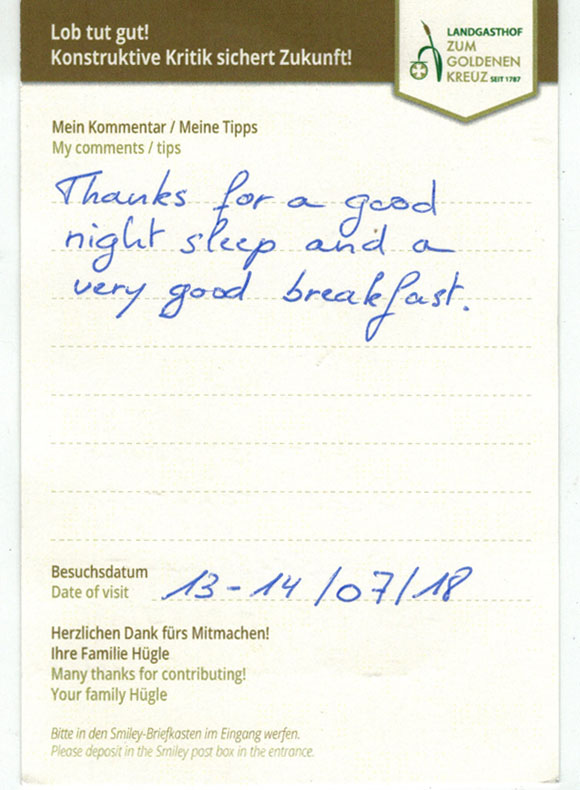 Lob tut gut!
Konstruktive Kritik sichert Zukunft!
LANDGASTHOF
ZUM
GOLDENEN
KREUZ SEIT 1787
Mein Kommentar / Meine Tipps
My comments / tips
Thanks for a good
night sleep and a
very good breakfast.
Besuchsdatum
Date of visit 13-14/07/18
Herzlichen Dank fürs Mitmachen!
Ihre Familie Hügle
Many thanks for contributing!
Your family Hügle
Bitte in den Smiley-Briefkasten im Eingang werfen.
Please deposit in the Smiley post box in the entrance.